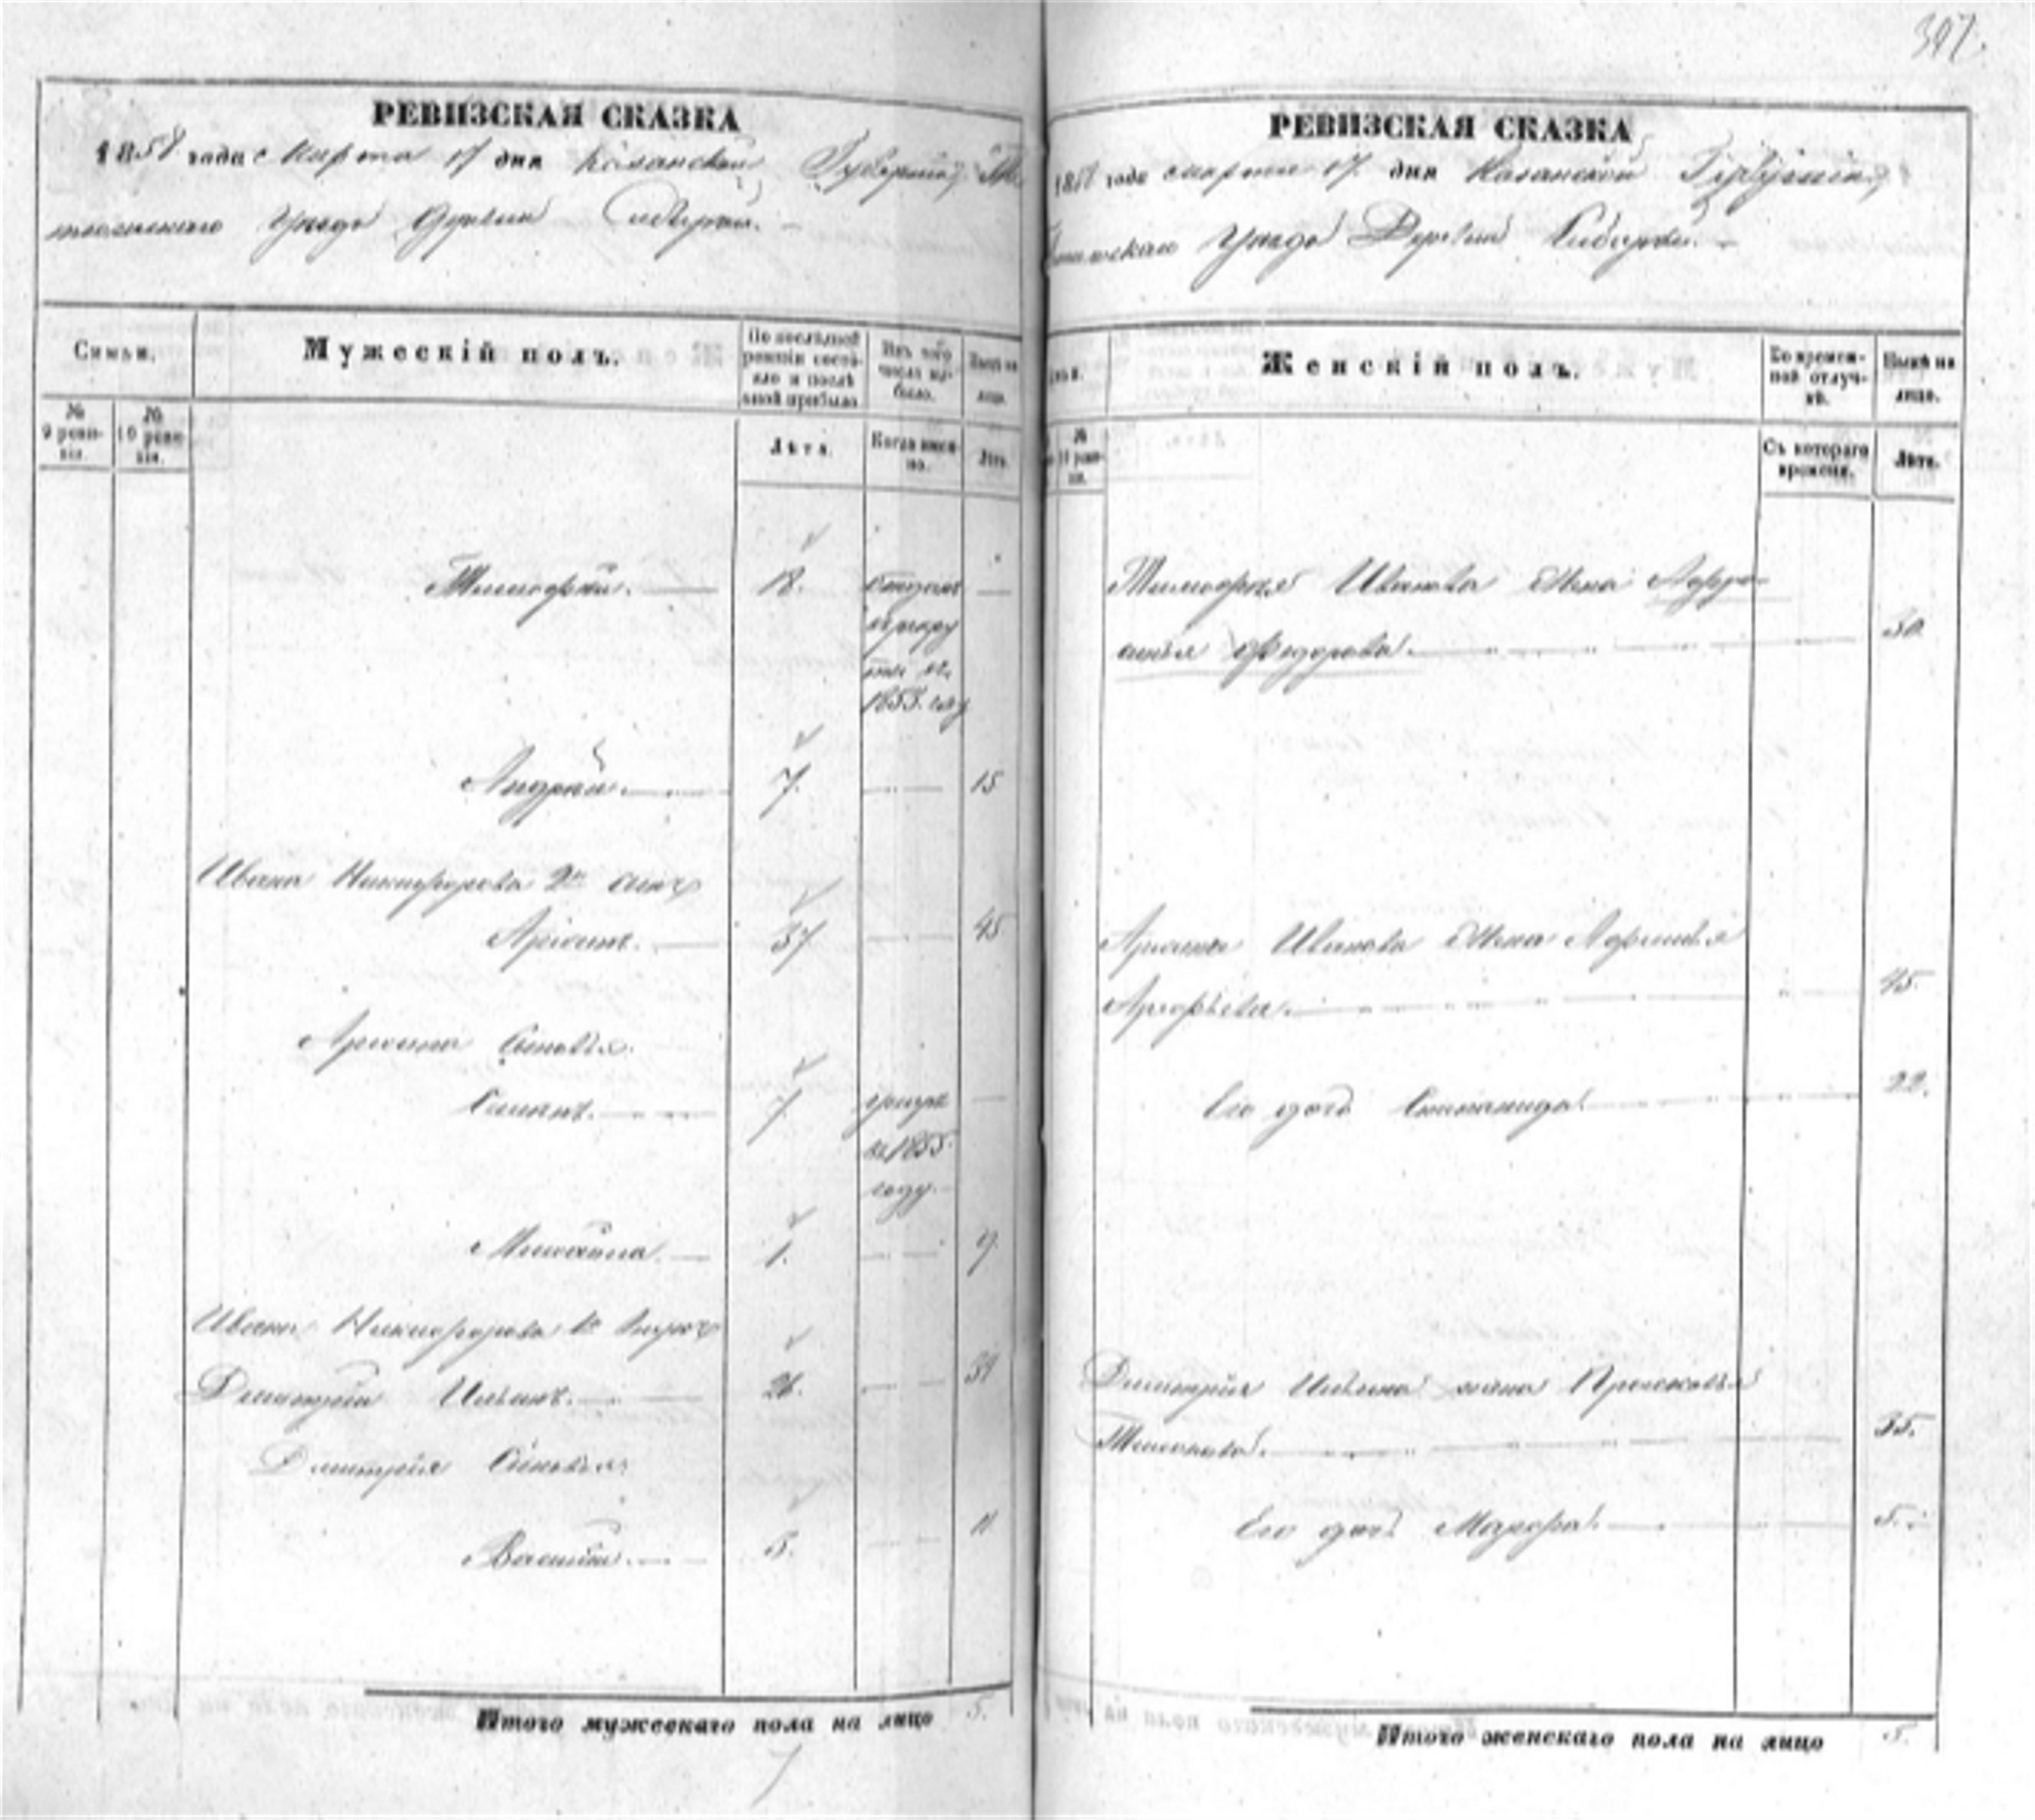 307.
РЕВИЗСКАЯ СКАЗКА
1858 года Марта 17 дня Казанской Губернии
Уезда Деревни
Семьи.
Мужескій полъ.
По послѣдней ревизіи состояло и послѣ оной прибыло
Изъ того числа выбыло.
Нынѣ на лицо.
№ 9 ревизіи.
№ 10 ревизіи.
Лѣта.
Когда именно.
Лѣта.
Тимофей. 18. Отданъ —
в рекру
ты въ
1853. году
Андрей. 7. 15
Ивана Никифорова 2й сынъ
Арсентий. 37 45
Сыновья.
7. умеръ —
въ 1855.
году.
Михайла. 1. 9.
Ивана Никифорова
Дмитрий Ильинъ. 26. 34
Дмитрия Сыновья:
Василий. 3. 11
Итого мужескаго пола на лицо 5.
7
РЕВИЗСКАЯ СКАЗКА
1858 года марта 17. дня Казанской Губернии
Уезда Деревни
Женскій полъ.
Во временной отлучкѣ.
Нынѣ на лицо.
№ 10 ревизіи.
Съ котораго времени.
Лѣта.
Тимофея Иванова Жена Афро-
синья Федорова. 30
Иванова Жена
45.
Его дочь Степанида. 22.
Дмитрия Ильина жена Прасковья
35.
Его дочь 5.
Итого женскаго пола на лицо 5.